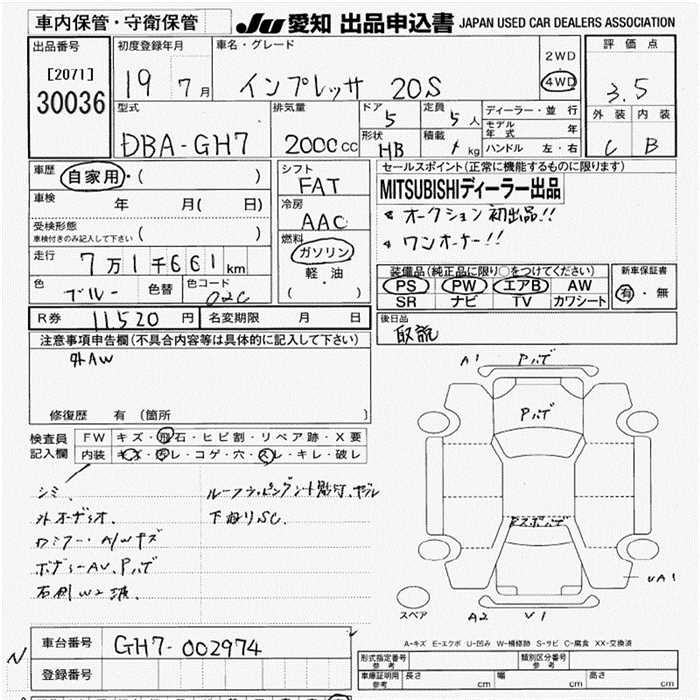 車内保管・守衛保管
JU 愛知 出品申込書 JAPAN USED CAR DEALERS ASSOCIATION
出品番号
[2071]
30036
初度登録年月
19 7月
車名・グレード
インプレッサ 20S
2WD
4WD
評価点
3.5
外装 内装
C B
型式
DBA-GH7
排気量
2000cc
ドア
5
定員
5人
形状
HB
積載
kg
ディーラー・並行
モデル年式 年
ハンドル 左・右
車歴 自家用・( )
車検 年 月( 日)
受検形態
車検付きのみ記入して下さい ( )
走行 7万1千661km
色 ブルー 色替 色コード 02C
シフト
FAT
冷房
AAC
燃料
ガソリン
軽・油
( ・ )
セールスポイント(正常に機能するものに限ります)
MITSUBISHIディーラー出品
オークション初出品!!
ワンオーナー!!
装備品(純正品に限り○をつけてください)
PS PW エアB AW
SR ナビ TV カワシート
新車保証書
有・無
R券 11,520円 名変期限 月 日
後日品
取説
注意事項申告欄(不具合内容等は具体的に記入して下さい)
外AW
修復歴 有(箇所 )
検査員記入欄
FW キズ・飛石・ヒビ割・リペア跡・X要
内装 キズ・汚レ・コゲ・穴・スレ・キレ・破レ
シミ、
外オーディオ、
ボディーAV、Pバブ
右側W2波
下廻りSC.
A1 Pバブ
Pバブ
UA1
スペア
A2 V1
A-キズ E-エクボ U-凹み W-補修跡 S-サビ C-腐食 XX-交換済
N
車台番号 GH7-002974
登録番号
形式指定番号 参考
類別区分番号 参考
車庫証明用参考 長さ cm 幅 cm 高さ cm